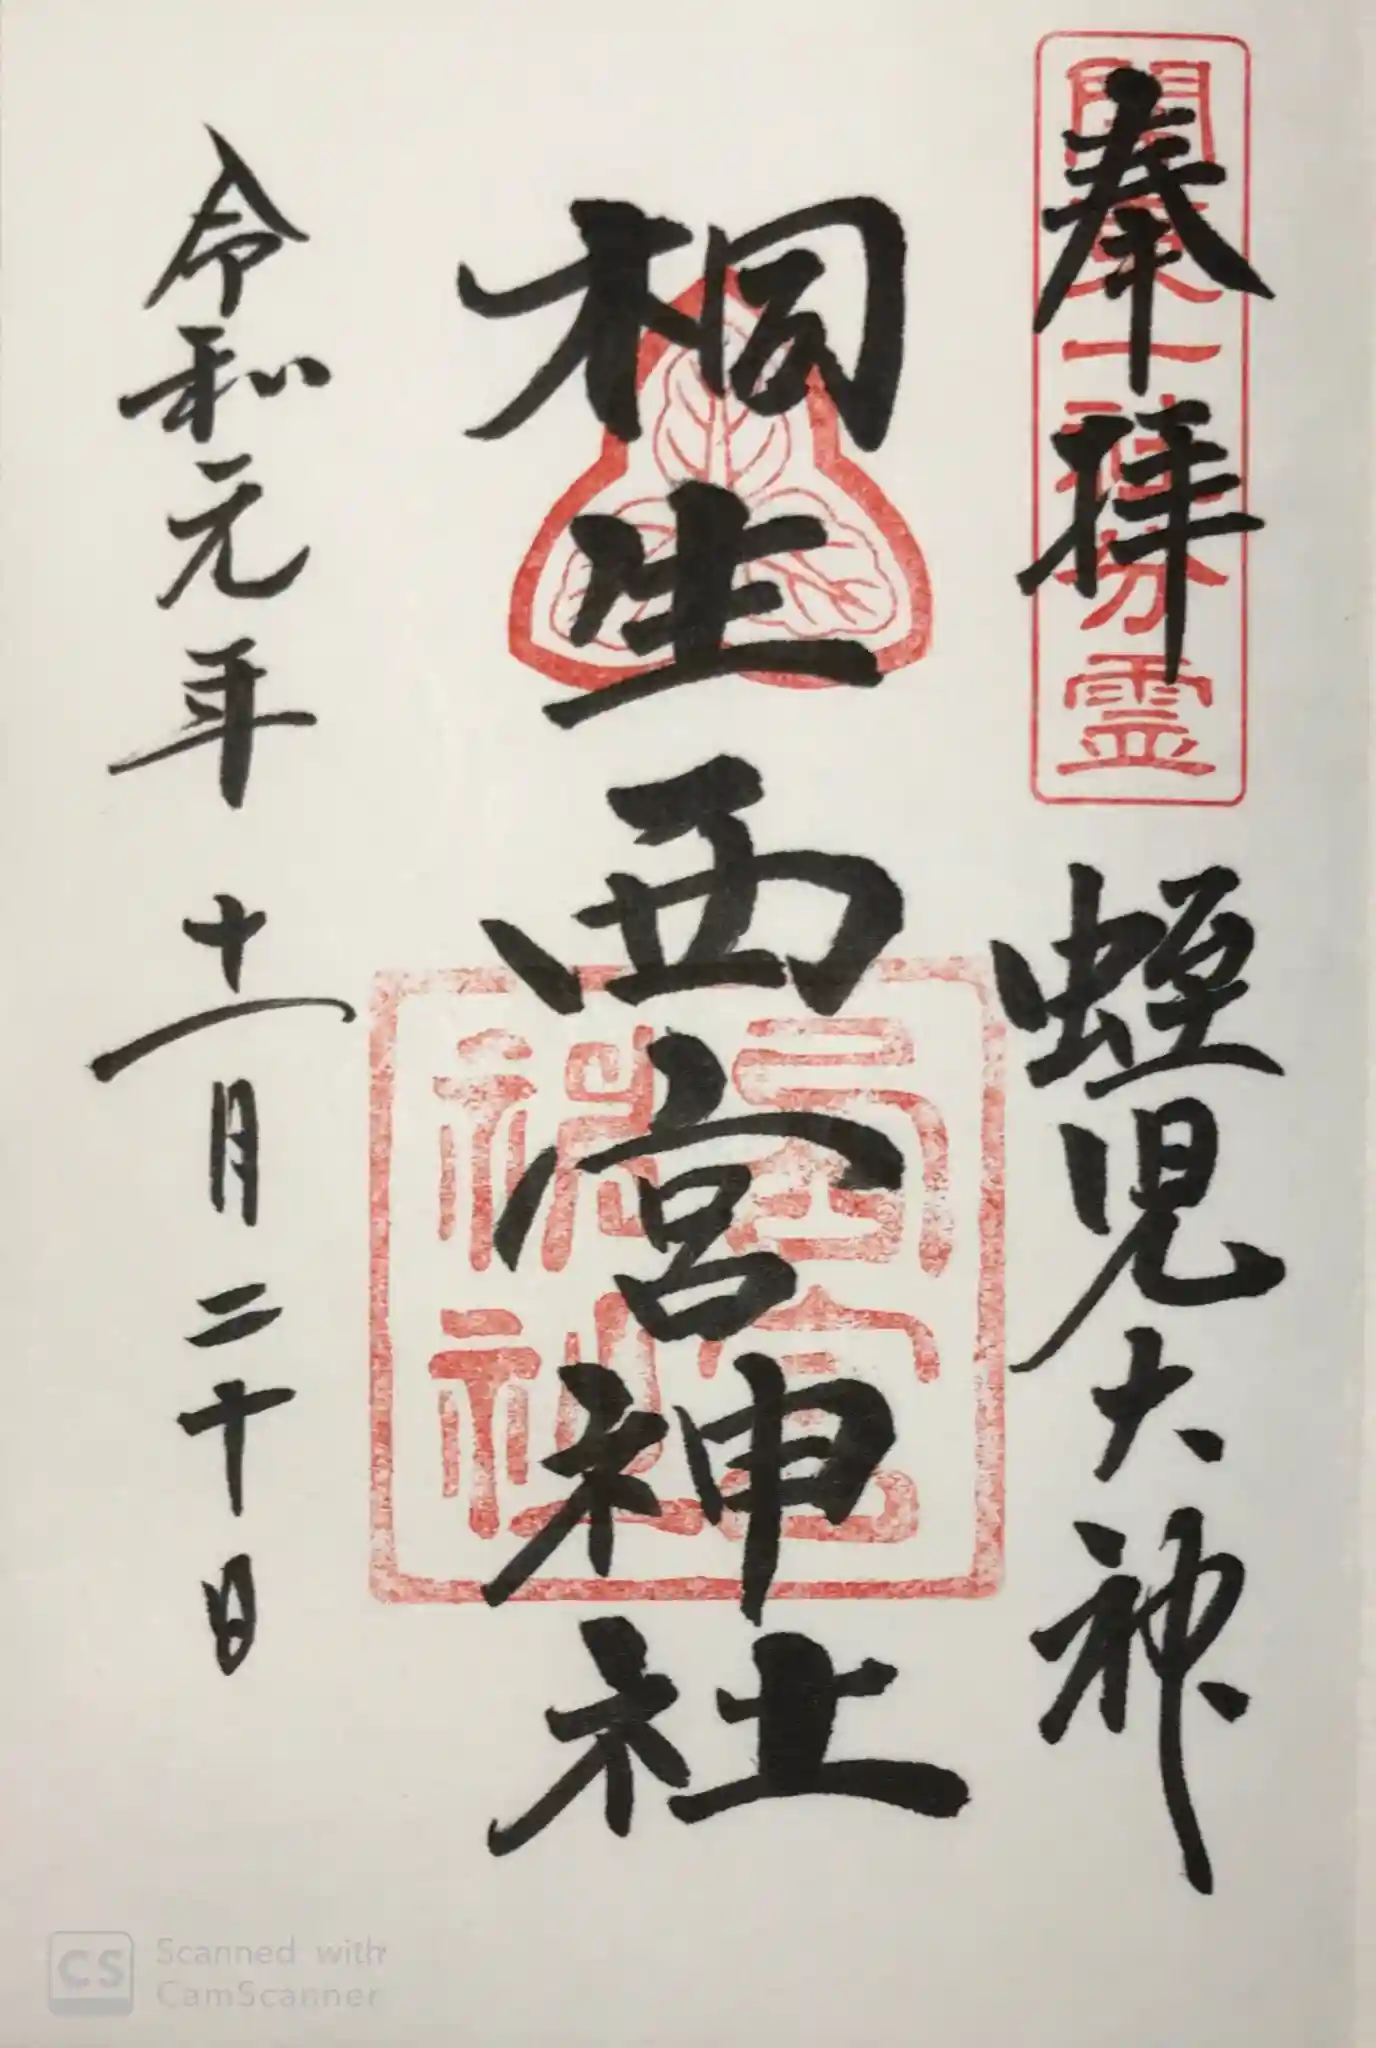 奉拝
関東一社分霊
蛭児大神
桐生西宮神社
令和元年十一月二十日
CS
Scanned with
CamScanner